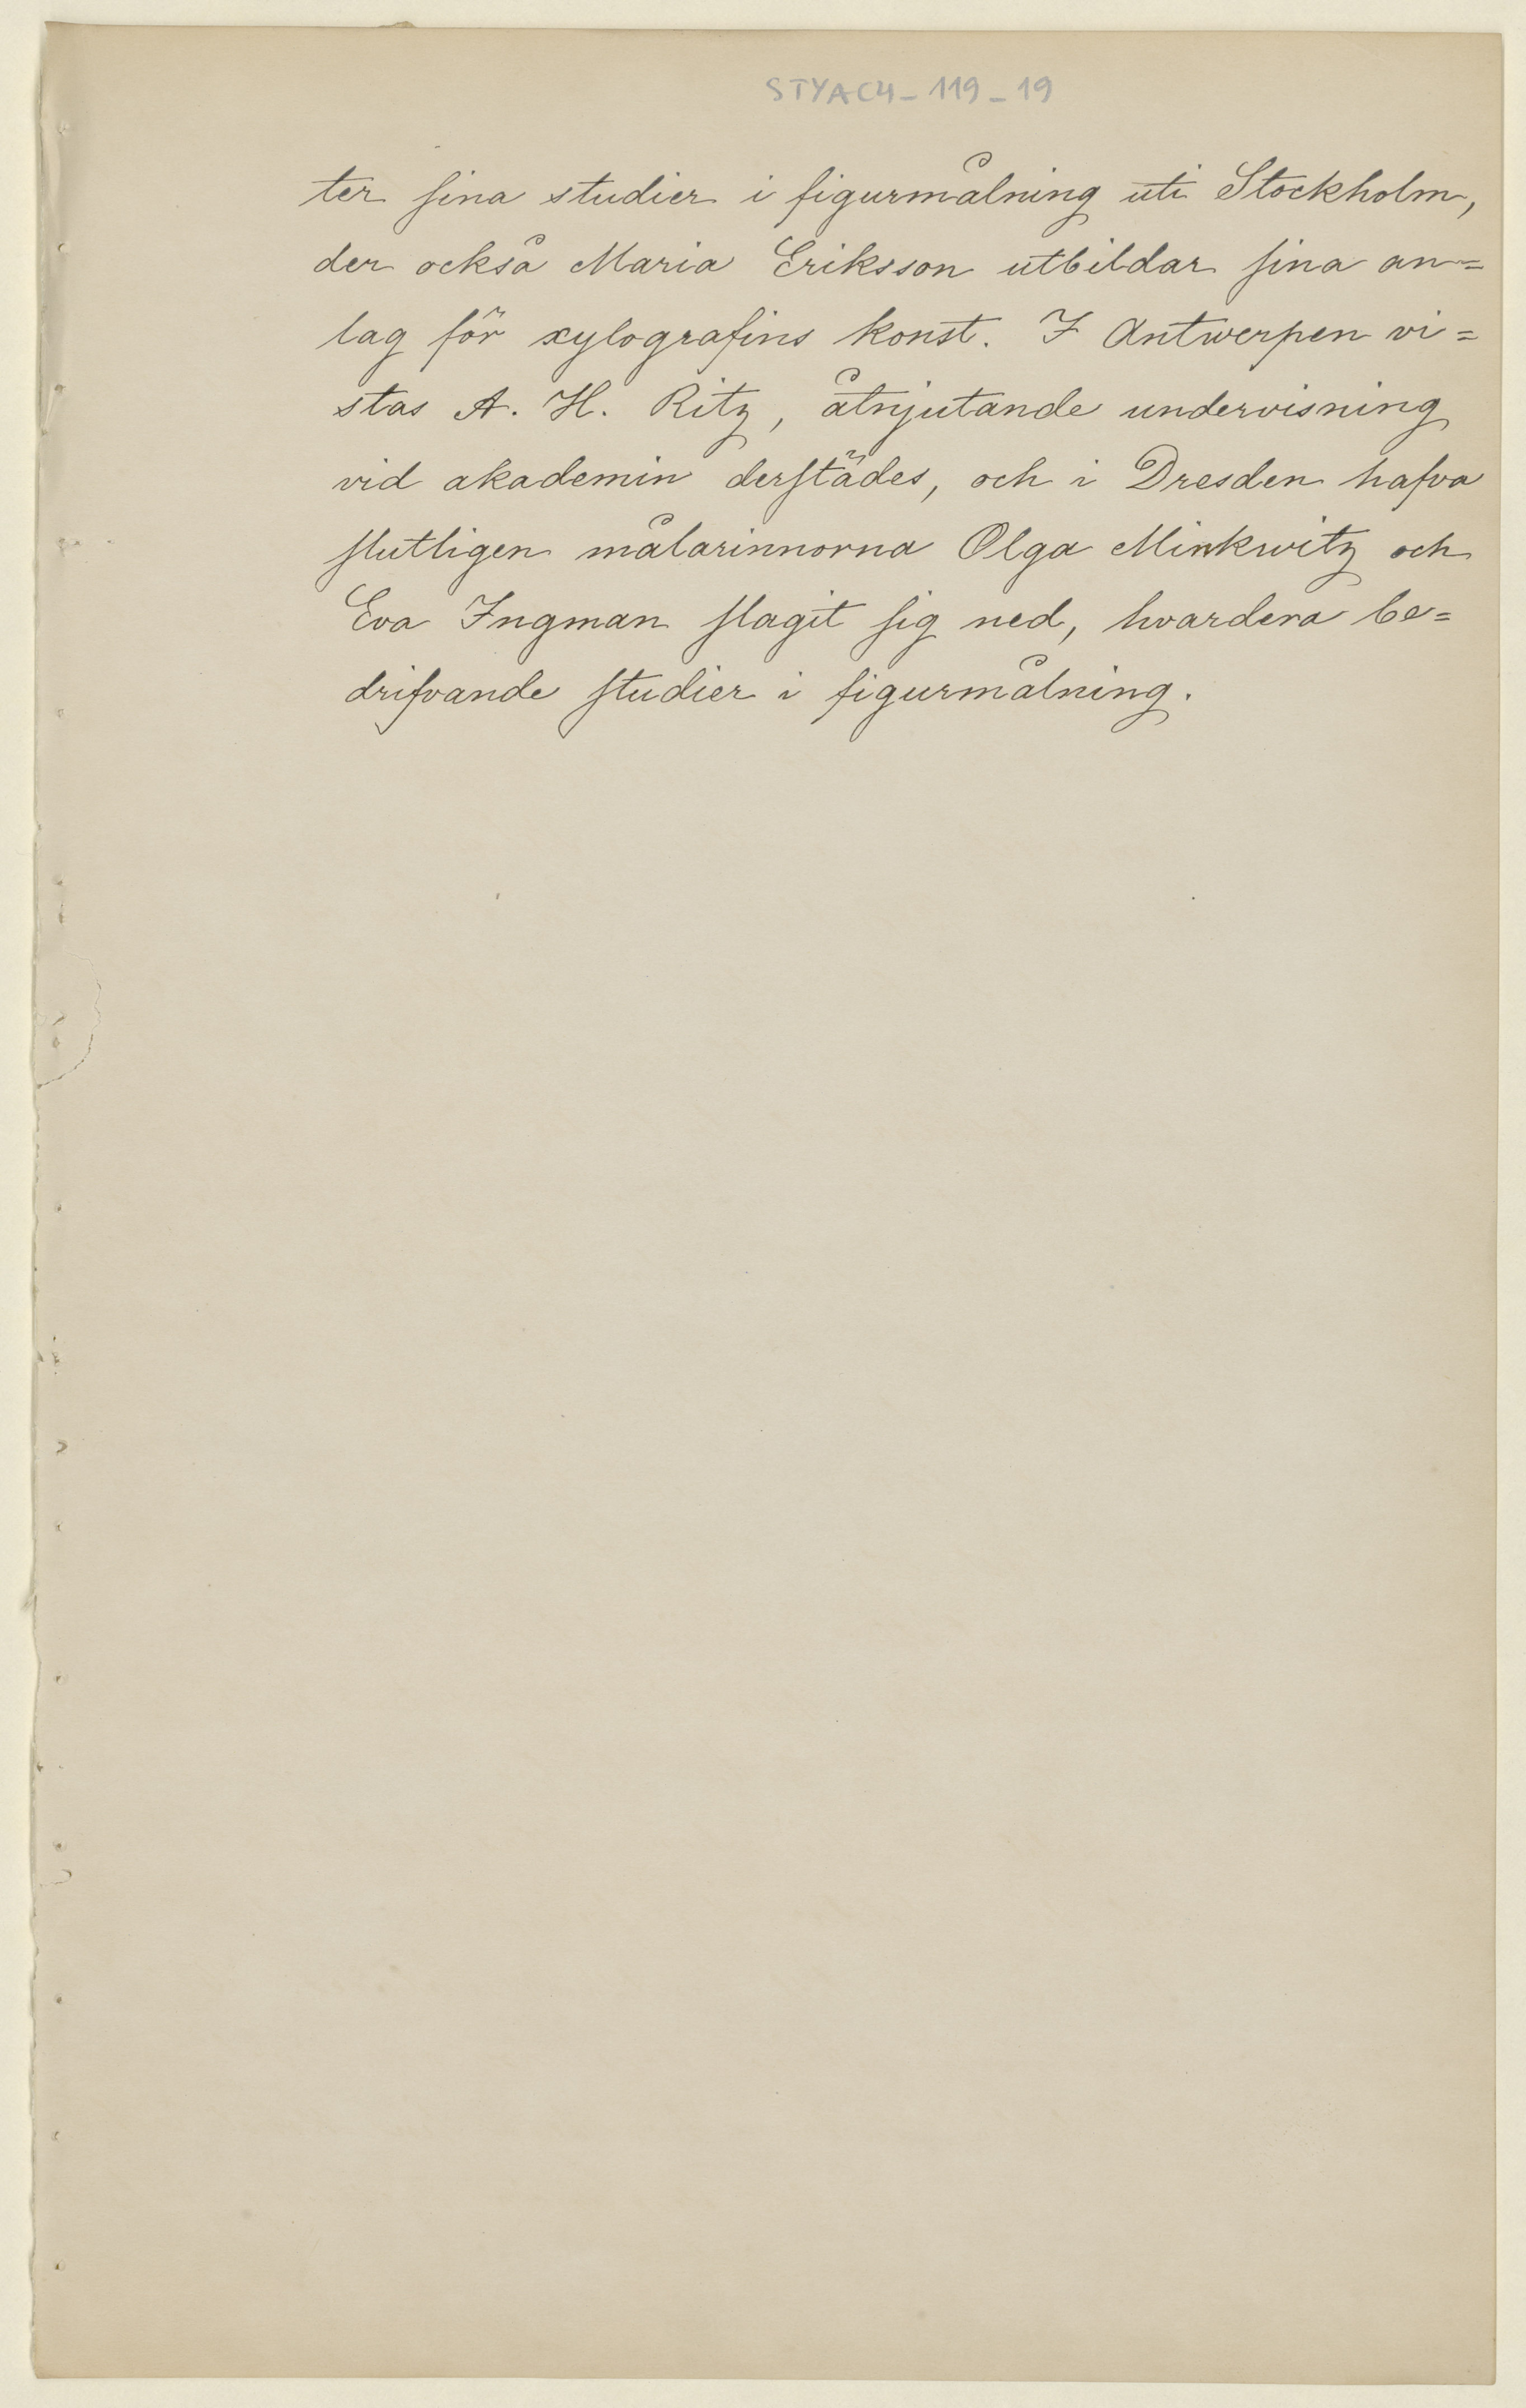 STYAC4_119_19
ter sina studier i figurmålning uti Stockholm,
der också Maria Eriksson utbildar sina an=
lag för xylografins konst. I Antwerpen vi=
stas A. H. Ritz, åtnjutande undervisning
vid akademin derstädes, och i Dresden hafva
slutligen målarinnorna Olga Minkwitz och
Eva Ingman slagit sig ned, hvardera be=
drifvande studier i figurmålning.